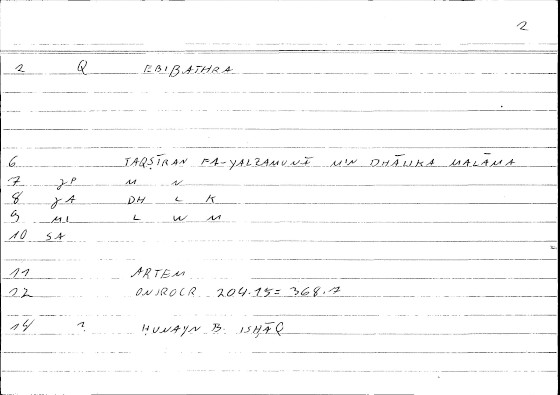 2
2 Q EBIBATHRA
6 TAQṢĪRAN FA-YALZAMUNĪ MIN DHĀLIKA MALĀMA
7 γP M N
8 γA DH L K
9 MI L W M
10 SA
11 ARTEM
12 ONIROCR 204.15 = 368.7
14 ? ḤUNAYN B. ISḤĀQ